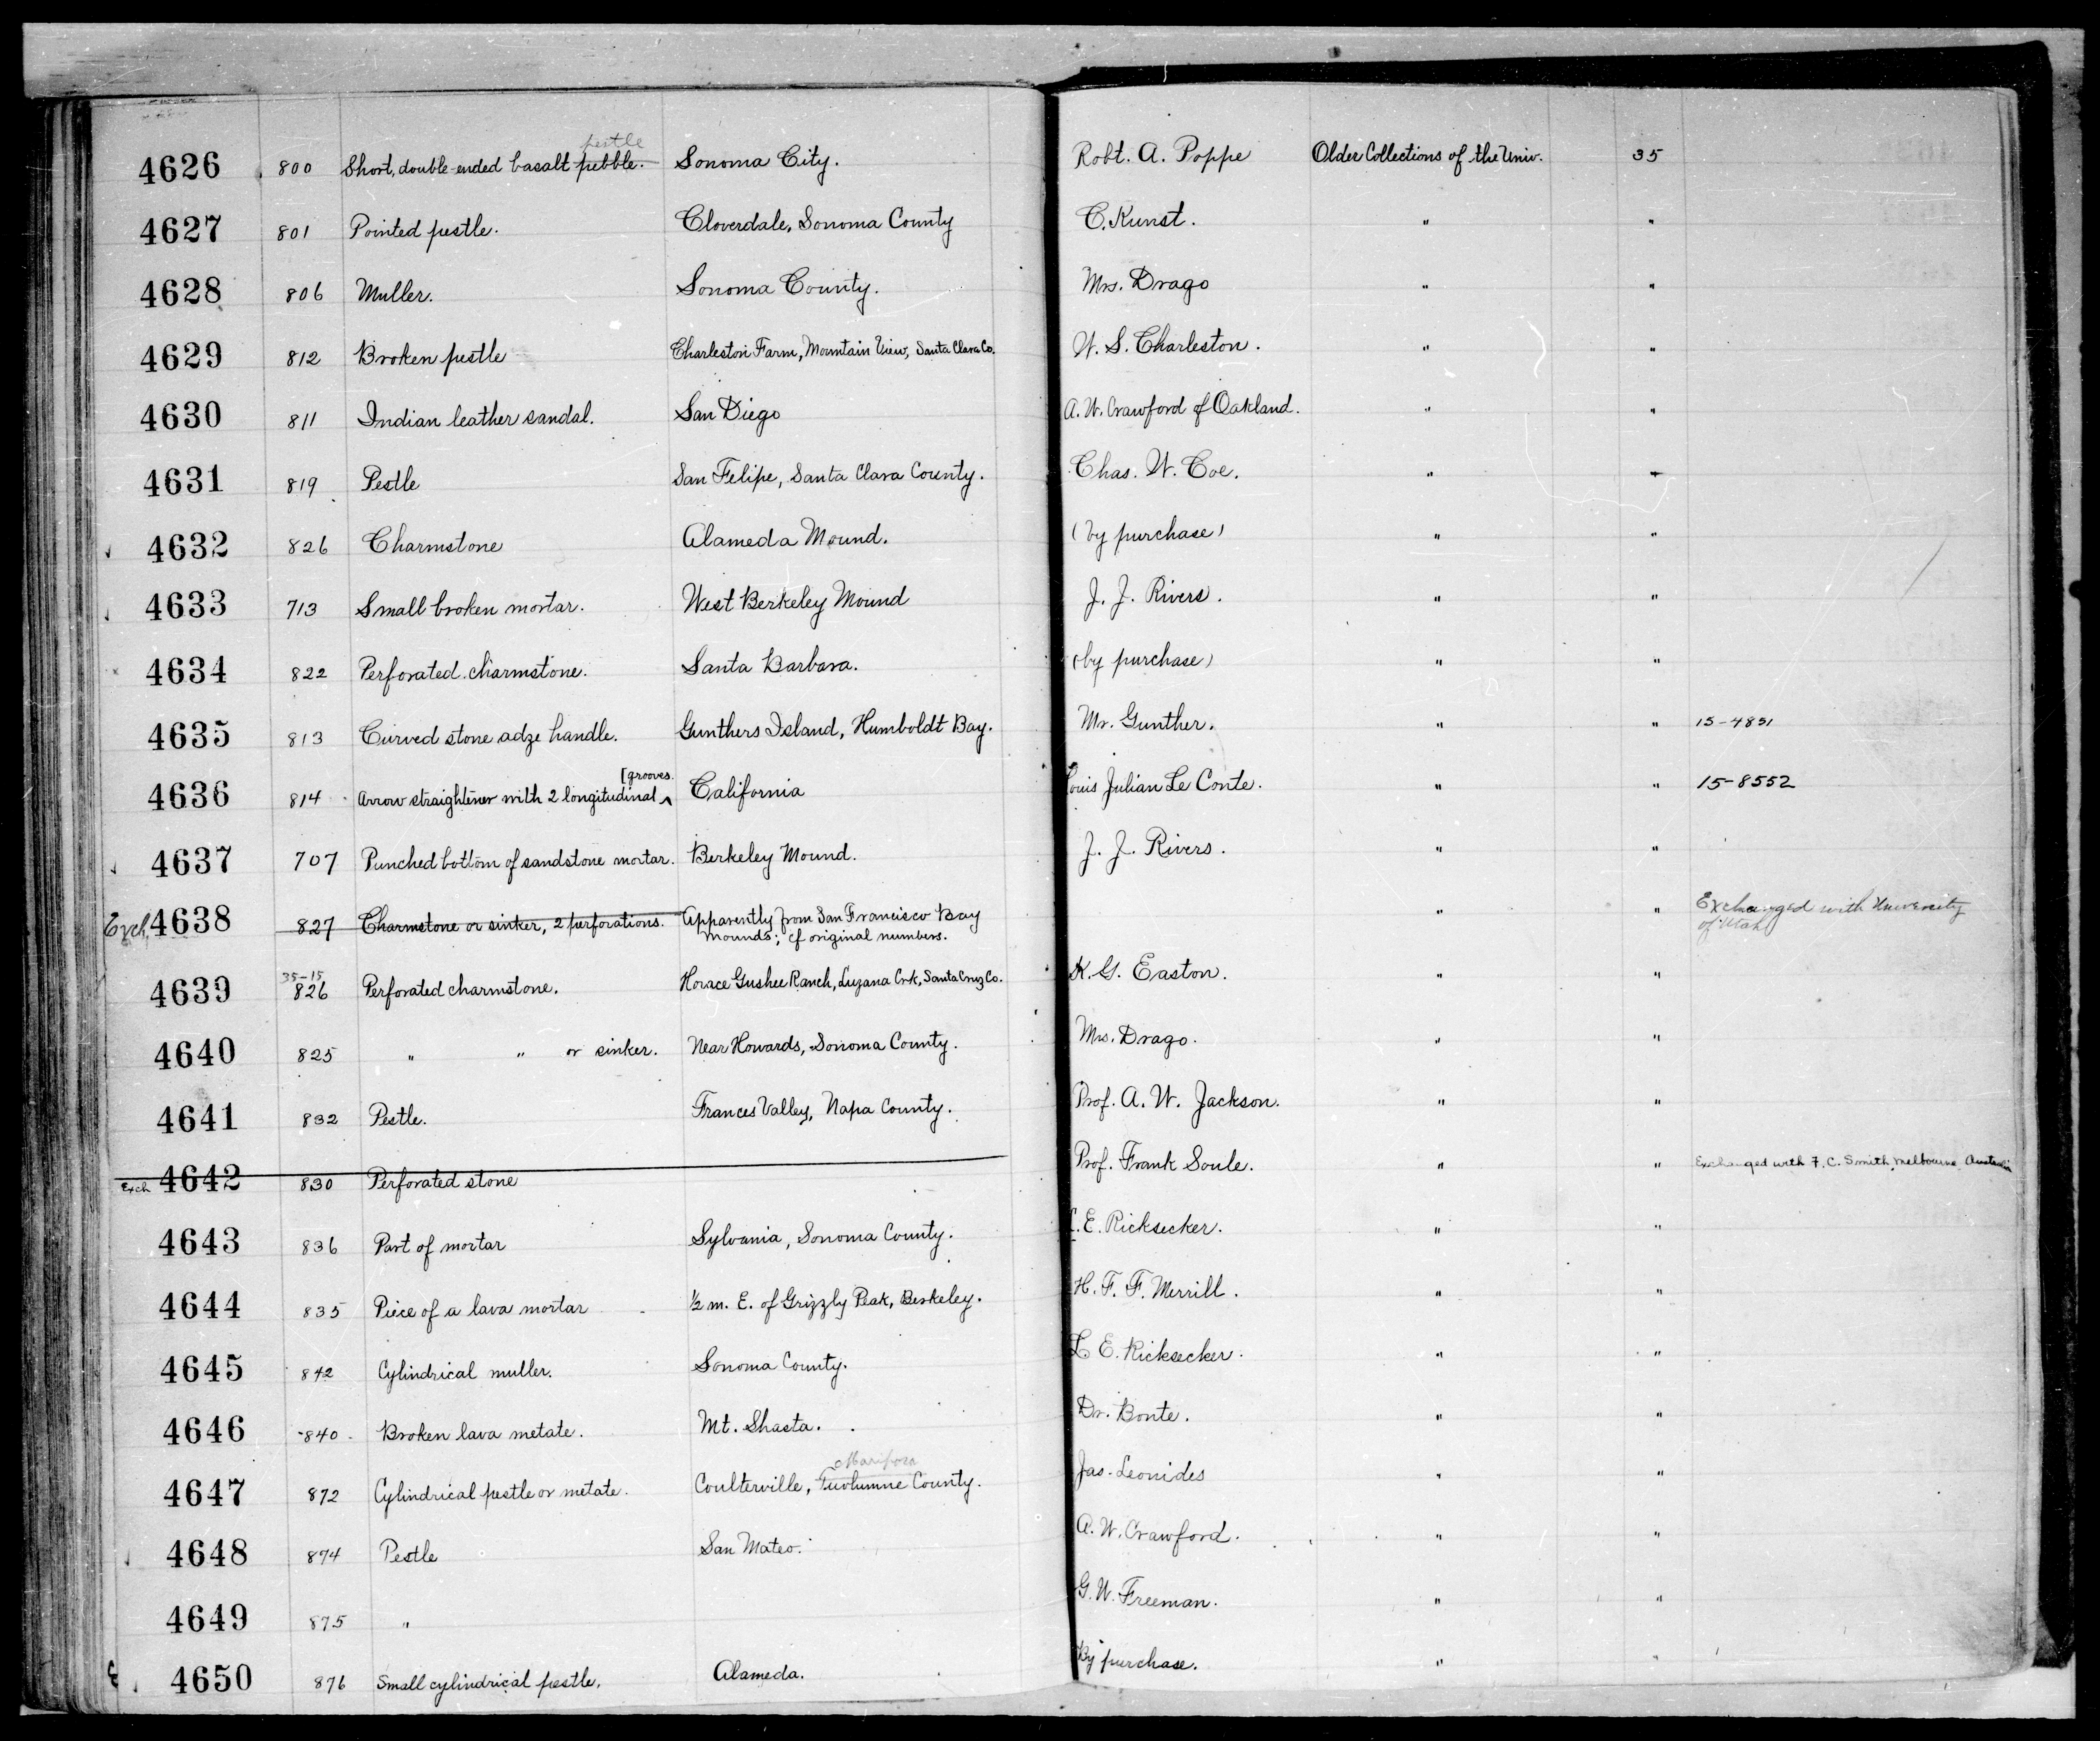 4626 800 Short, double-ended basalt pebble. pestle Sonoma City. Robt. A. Poppe Older Collections of the Univ. 35
4627 801 Pointed pestle. Cloverdale, Sonoma County C. Kunst. " "
4628 806 Muller. Sonoma County. Mrs. Drago " "
4629 812 Broken pestle Charleston Farm, Mountain View, Santa Clara Co. W. S. Charleston. " "
4630 811 Indian leather sandal. San Diego A. W. Crawford of Oakland. " "
4631 819 Pestle San Felipe, Santa Clara County. Chas. W. Coe. " "
4632 826 Charmstone Alameda Mound. (by purchase) " "
4633 713 Small broken mortar. West Berkeley Mound J. J. Rivers. " "
4634 822 Perforated charmstone. Santa Barbara. (by purchase) " "
4635 813 Curved stone adze handle. Gunthers Island, Humboldt Bay. Mr. Gunther. " " 15-4851
4636 814 Arrow straightener with 2 longitudinal ^ [grooves. California Louis Julian Le Conte. " " 15-8552
4637 707 Punched bottom of sandstone mortar. Berkeley Mound. J. J. Rivers. " "
Exch. 4638 827 Charmstone or sinker, 2 perforations. Apparently from San Francisco Bay " " Exchanged with University
mounds; cf original numbers. of Utah
35-15
4639 826 Perforated charmstone. Horace Gushee Ranch, Luzana Crk, Santa Cruz Co. K. G. Easton. " "
4640 825 " " or sinker. Near Howards, Sonoma County. Mrs. Drago. " "
4641 832 Pestle. Frances Valley, Napa County. Prof. A. W. Jackson. " "
Exch 4642 830 Perforated stone Prof. Frank Soule. " " Exchanged with F. C. Smith, Melbourne, Australia
4643 836 Part of mortar Sylvania, Sonoma County. L. E. Ricksecker. " "
4644 835 Piece of a lava mortar ½ m. E. of Grizzly Peak, Berkeley. H. F. F. Merrill. " "
4645 842 Cylindrical muller. Sonoma County. L E. Ricksecker. " "
4646 840 Broken lava metate. Mt. Shasta. Dr. Bonte. " "
Mariposa
4647 872 Cylindrical pestle or metate. Coulterville, Tuolumne County. Jas. Leonides " "
4648 874 Pestle San Mateo. A. W. Crawford. " "
4649 875 " G. W. Freeman. " "
4650 876 Small cylindrical pestle. Alameda. By purchase. " "